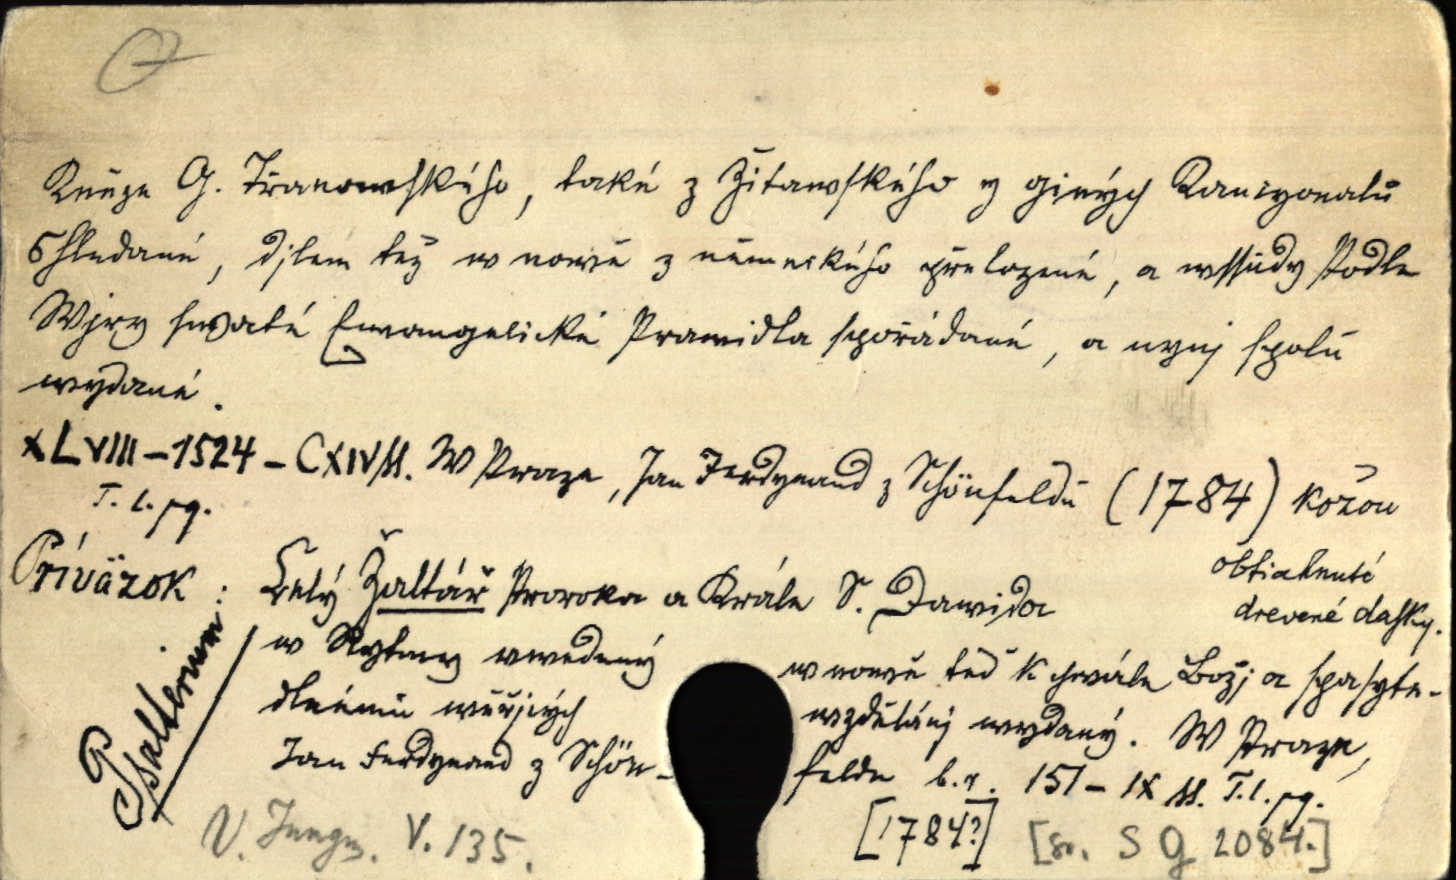 Kněze G. Třanowského, také z Žitawského y giných Kancyonalů
Shledané, djlem též w nowě z německého přeložené, a wssudy Podle
Wjry swaté Ewangelické Prawidla spořádané, a nynj spolu
wydané.
XLVIII-1524-CXIV ss. W Praze, Jan Ferdynand z Schönfeldu (1784) Kožou
T. l. pg.
obtiahnuté
drevené dosky.
Prívázok: Celý Žaltář Proroka a Krále S. Dawida
w Rytmy uwedený w nowě teď k chwále Božj a spasyte-
dlnému wěřjcých wzdělánj wydaný. W Praze,
Jan Ferdynand z Schön-feldu b. r. 151-IX ss. T. l. pg.
Psalterium
[1784?]
V. Jungm. V. 135. [S G 2084.]